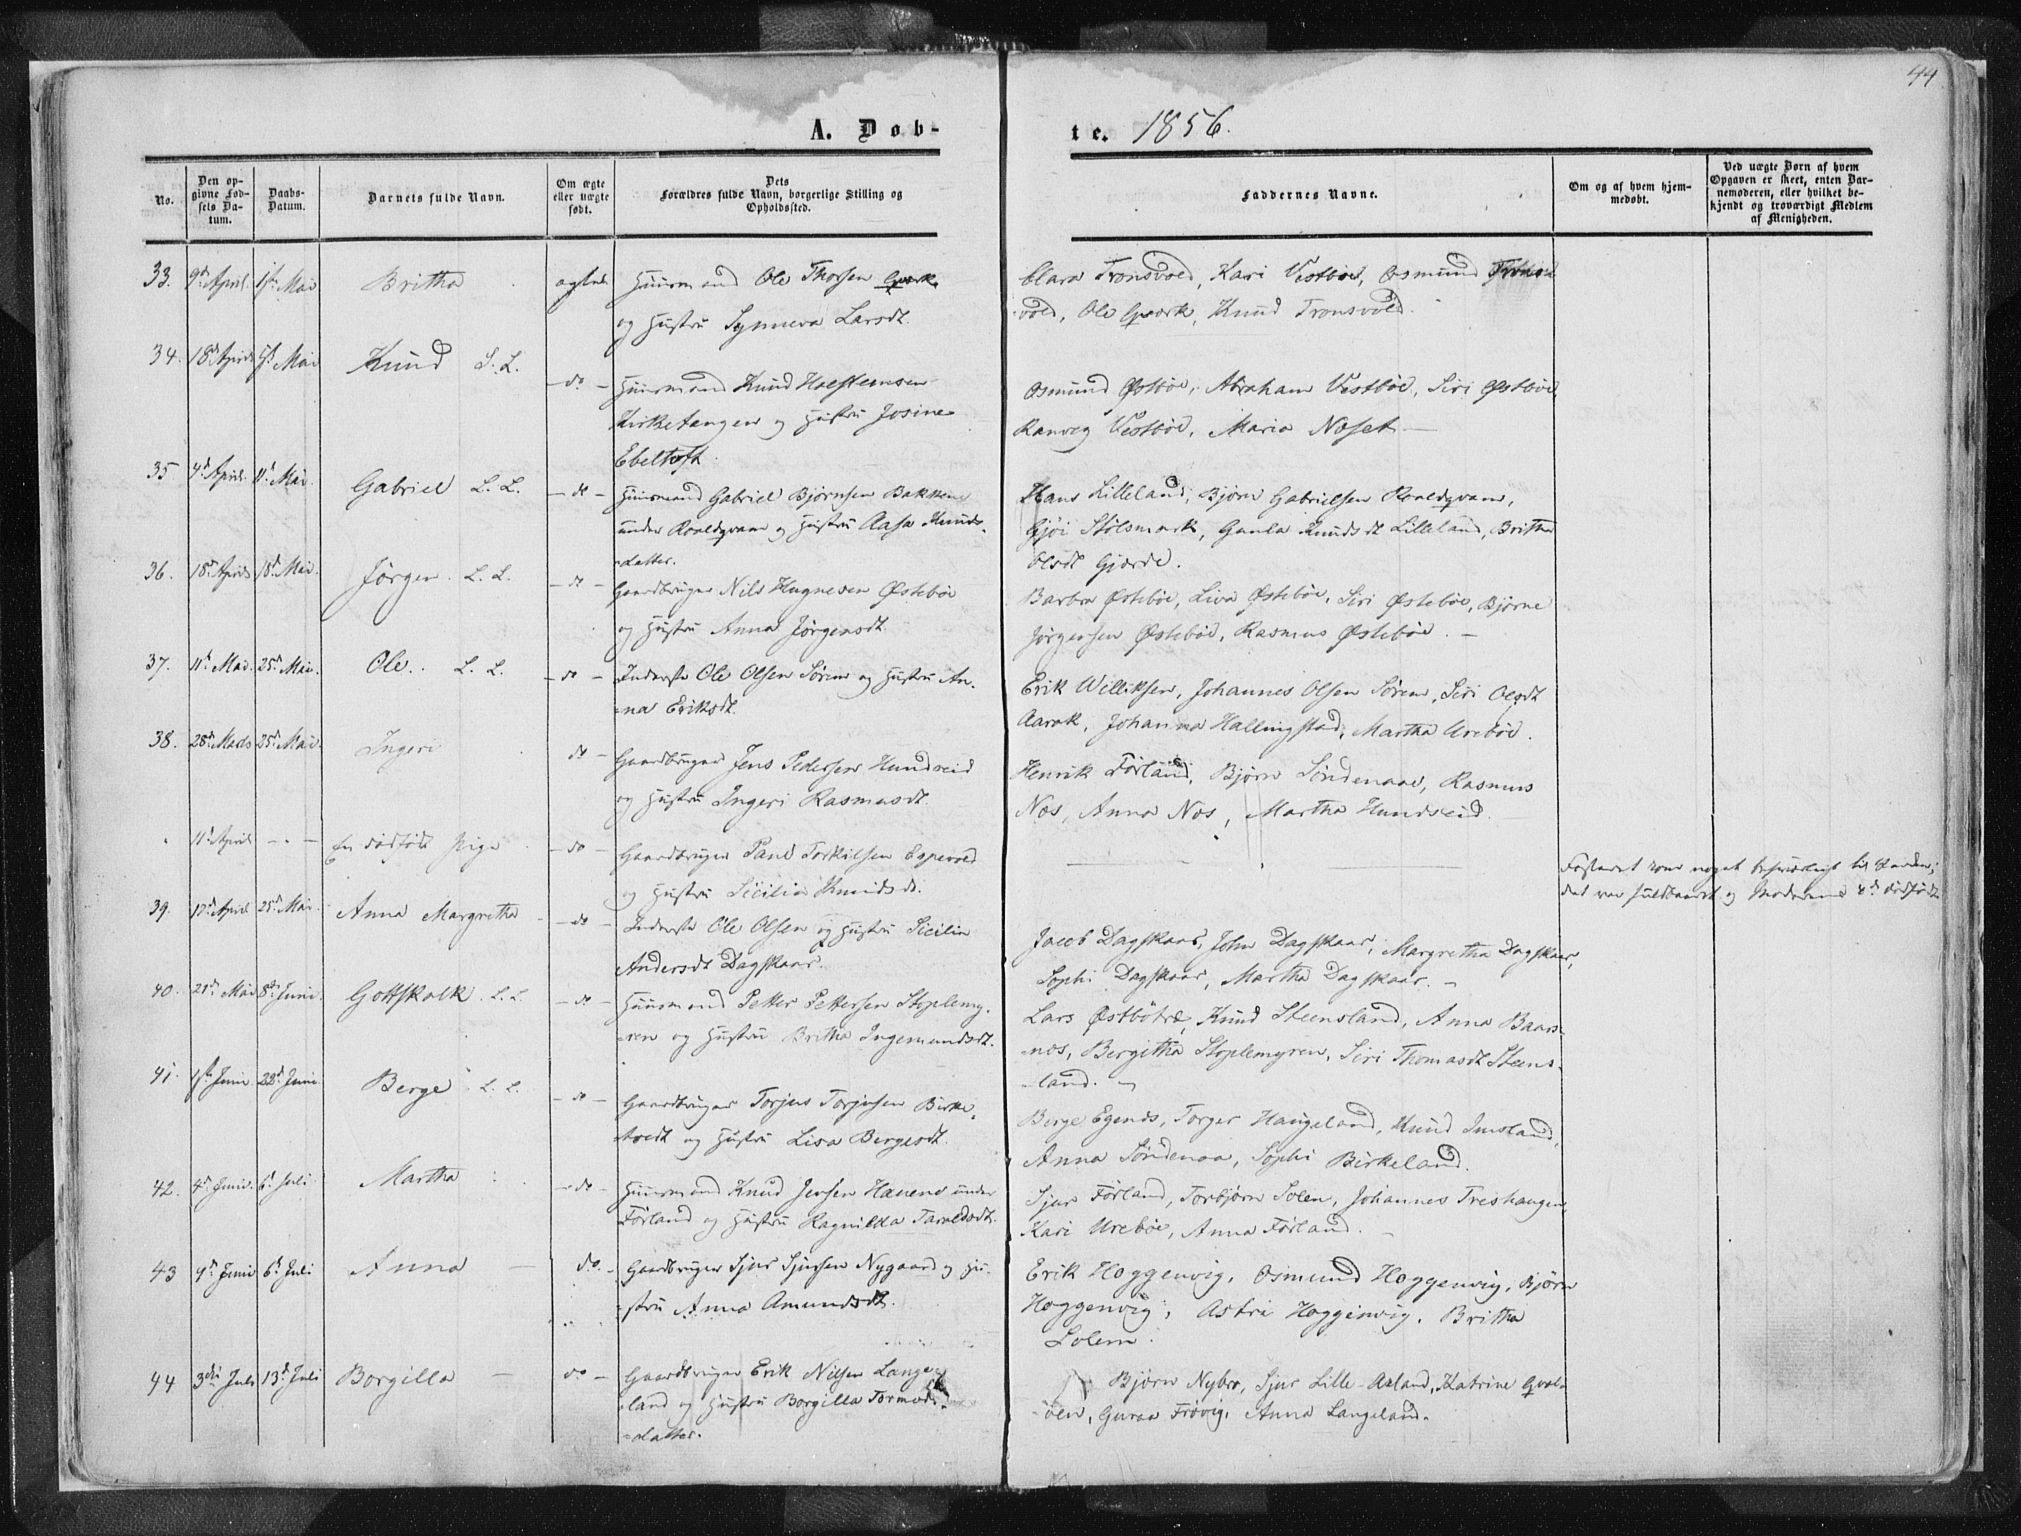 44
A. Døb-
te. 1856.
No.
Den op-
givne Fød-
sels Da-
tum.
Daabs-
Datum.
Barnets fulde Navn.
Om ægte
eller uægte
født.
Dets
Forældres fulde Navn, borgerlige Stilling og
Opholdssted.
Faddernes Navne.
Om og af hvem hjem-
medøbt.
Ved uægte Børn af hvem
Opgaven er skeet, enten Bar-
nemoderen, eller hvilket be-
kjendt og troværdigt Medlem
af Menigheden.
33. 9de April. 1ste Mai Britha ægte Huusmand Ole Thorsen Qværk
og Hustru Synneva Larsdt.
Clara Tronsvold, Kari Vestbøe, Osmund Trons-
vold, Ole Qværk, Knud Tronsvold.
34. 18de April Mai Knud S. L. - do - Huusmand Knud Holstensen
Kirketangen og Hustru Josine
Ebeltoft.
Osmund Østbøe, Abraham Vestbøe, Siri Østbøe
Ranveg Vestbøe, Maria Næset -
35 4de April. 11te Mai. Gabriel L. L. - do - Huusmand Gabriel Bjørnsen Bakken
under Roaldqvam og Hustru Aasa Knuds-
datter.
Hans Lilleland, Bjørn Gabrielsen Roaldqvam,
Gjøi Stølsmark, Gunla Knudsdt Lilleland, Britha
Olsdt Gjærde.
36. 18de April 18de Mai. Jørgen. L. L. - do - Gaardbruger Nils Hognesen Østebøe
og Hustru Anna Jørgensdt.
Barbra Østebøe, Liva Østebøe, Siri Østebøe, Bjørne
Jørgensen Østebøe, Rasmus Østebøe. -
37. 11te Mai. 25de Mai. Ole. L. L. - do - Inderste Ole Olsen Søren og Hustru An-
-na Eriksdt.
Erik Williksen, Johannes Olsen Søren, Siri Olsdt
Aarak, Johanna Hallingstad, Martha Urebøe.
38. 28de Marts 25de Mai. Ingeri do - Gaardbruger Jens Pedersen Hundseid
og Hustru Ingeri Rasmusdt.
Henrik Førland, Bjørn Søndenaae, Rasmus
Næs, Anna Næs, Martha Hundseid.
11te April - . - En dødfødt Pige - do - Gaardbruger Paul Torkilsen Espevold
og Hustru Sicilia Knudsdt.
Fosteret kom noget besværligt til Verden;
det var fuldbaaret og Moderens dødfødte
39. 17de April 25de Mai. Anna Margretha - do - Inderste Ole Olsen og Hustru Sicilia
Andersdt Dagskaar.
Jacob Dagskaar, John Dagskaar, Margretha Dagskaar,
Sophi Dagskaar, Martha Dagskaar. -
40. 21de Mai 8de Juni. Gottskalk. L. L. - do - Huusmand Petter Pettersen Stoplemy-
-ren og Hustru Britha Ingemundsdt.
Lars Østbøtræ, Knud Steensland, Anna Baars-
-næs, Bergitha Stoplemyren, Siri Thomasdt Steens-
-land. -
41. 1ste Juni 22de Juni. Berge L. L. - do - Gaardbruger Torjus Torjusen Birke-
tvedt og Hustru Lisa Bergesdt.
Berge Egends, Torger Haugeland, Knud Imsland,
Anna Søndenaa, Sophi Birkeland.
42. 4de Juni. 6te Juli Martha - do - Huusmand Knud Jensen Hauene under
Førland og Hustru Ragnilda Taraldsdt.
Sjur Førland, Torbjørn Solem, Johannes Treshaugen
Kari Urebøe, Anna Førland. -
43 9de Juni 6te Juli Anna - do. - Gaardbruger Sjur Sjursen Nygaard og Hu-
-stru Anna Amundsdt.
Erik Hoggenvig, Osmund Hoggenvig, Bjørn
Hoggenvig, Astri Hoggenvig. Britha
Solem.
44 3die Juli 13de Juli Borgilla - do - Gaardbruger Erik Nilsen Lange-
-land og Hustru Borgilla Tormods-
-datter.
Bjørn Nybro, Sjur Lille-Aaland, Katrine Qval-
-øen, Guroa Frøvig, Anna Langeland.